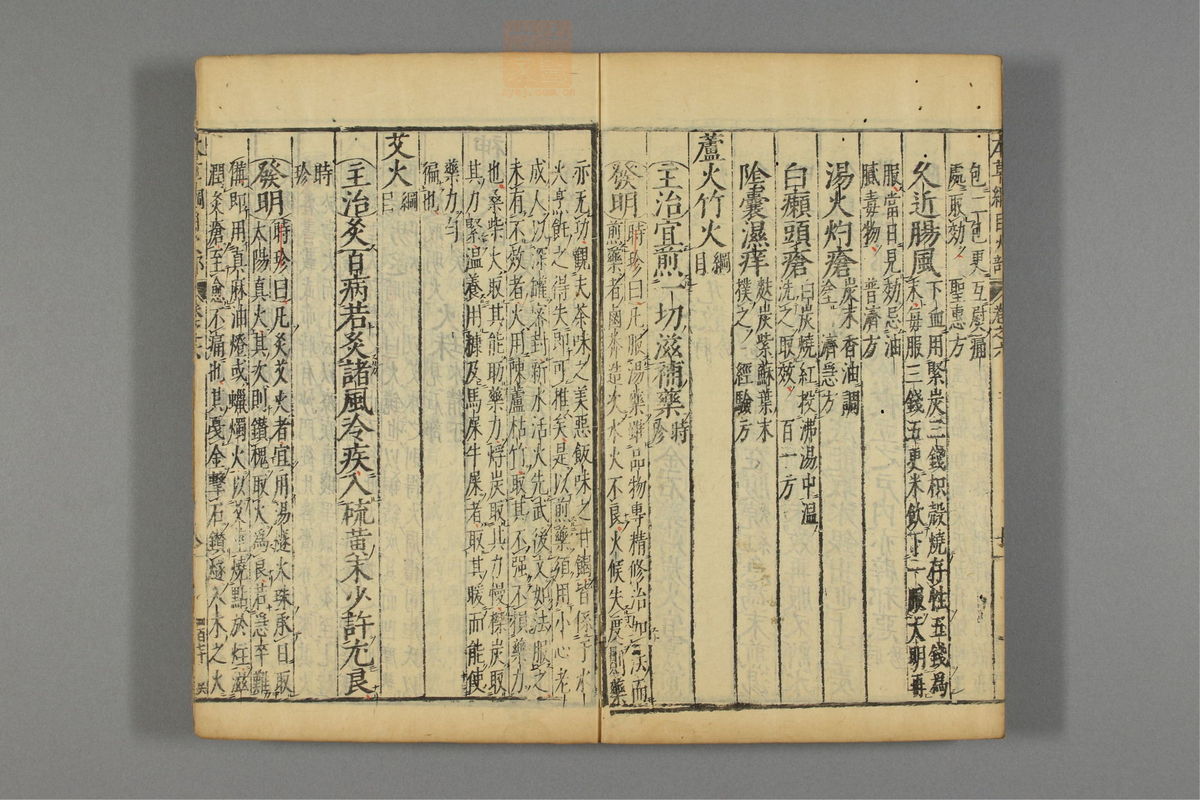 包二包更互熨痛
處取効聖惠方
久近腸風下血用緊炭三錢枳殼燒存性五錢爲
末每服三錢五更米飲下一服天明再
服當日見効忌油
膩毒物普濟方
湯火灼瘡炭末香油調
塗濟急方
白癩頭瘡白炭燒紅投沸湯中溫
洗之取效百一方
陰囊濕痒麩炭紫蘇葉末
撲之經驗方
蘆火竹火綱目
主治宜煎一切滋補藥時珍
發明時珍曰凡服湯藥雖品物專精修治如法而
煎藥者鹵莽造次水火不良火候失度則藥
亦无功觀夫茶味之美惡飯味之甘餲皆係于水
火烹飪之得失即可推矣是以煎藥須用小心老
成人以深罐密封新水活火先武後文如法服之
未有不效者火用陳蘆枯竹取其不强不損藥力
也桑柴火取其能助藥力烰炭取其力慢櫟炭取
其力緊溫養用糠及馬屎牛屎者取其暖而能使
藥力勻
徧也
艾火綱目
主治灸百病若灸諸風冷疾入硫黃末少許尤良
時
珍
發明時珍曰凡灸艾火者宜用陽燧火珠承日取
太陽真火其次則鑽槐取火爲良若急卒難
備即用真麻油燈或蠟燭火以艾莖燒點於炷滋
潤灸瘡至愈不痛也其戛金擊石鑽燧八木之火